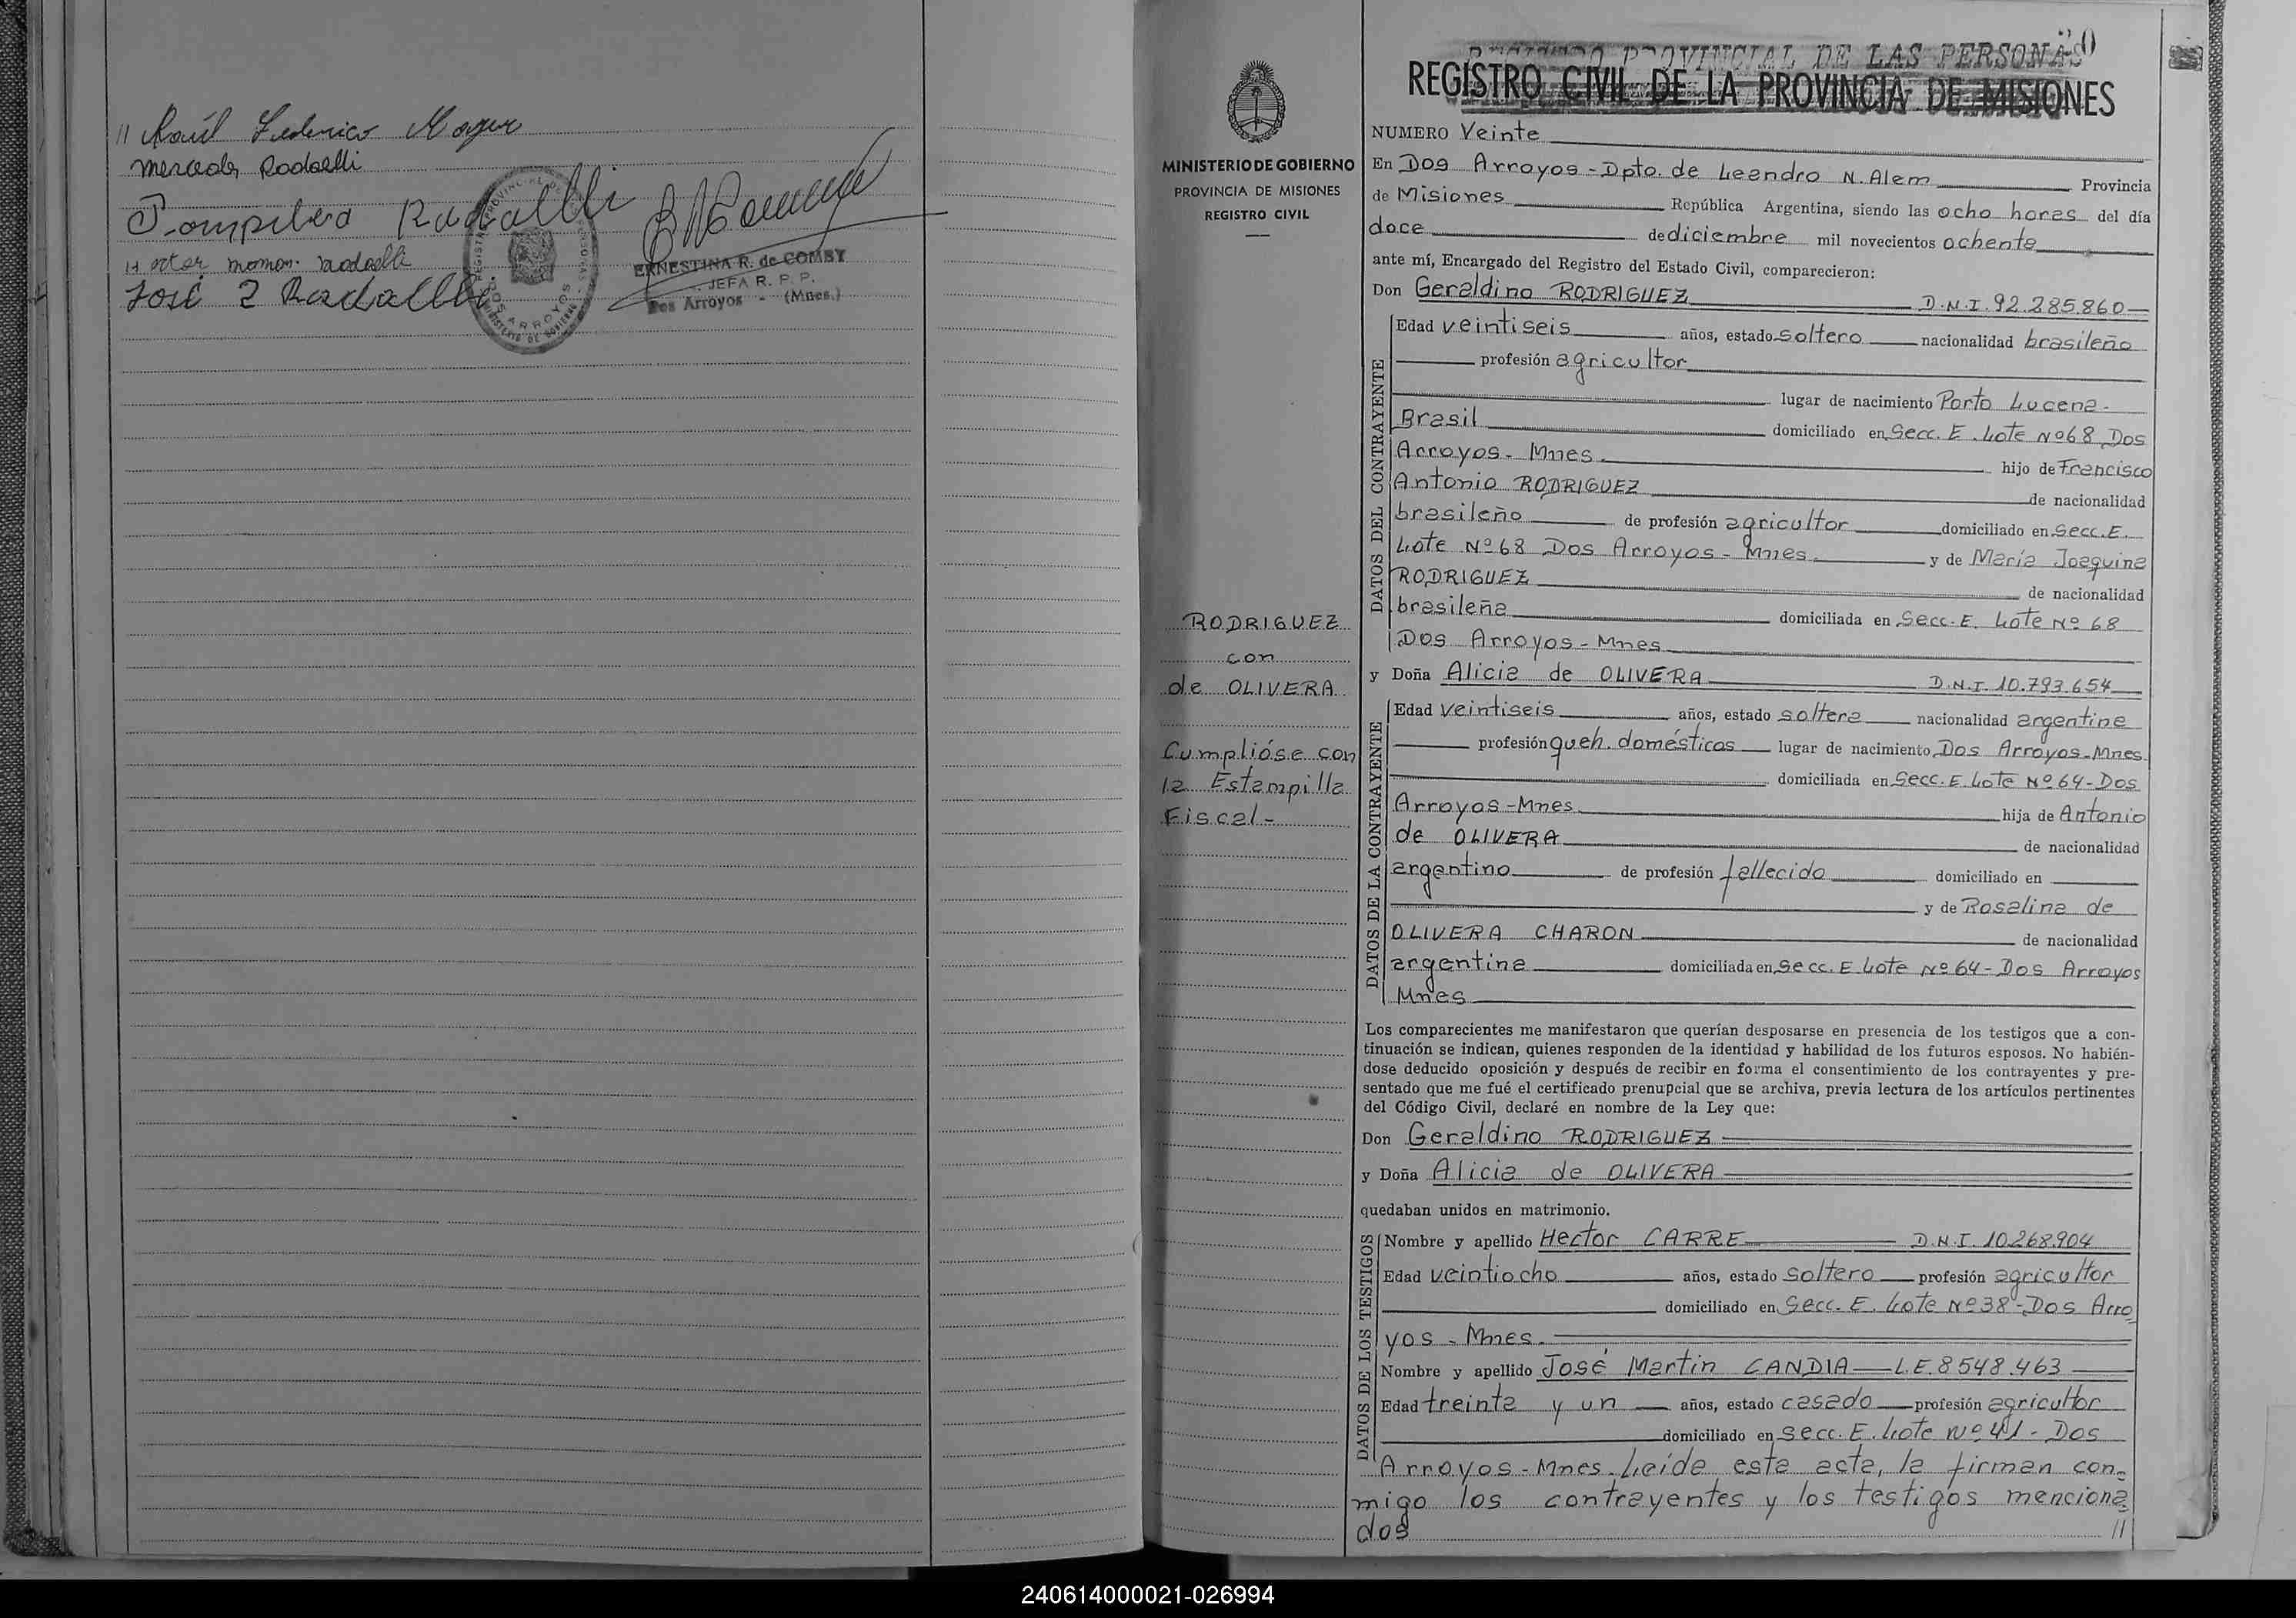 // Raúl Federico Mayer
Mercedes Radaelli
Pompileo Radaelli
Hector Radaelli
José Radaelli
ERNESTINA R. de COMBY
JEFA R. P. P.
Dos Arroyos - (Mnes.)
REGISTRO PROVINCIAL DE LAS PERSONAS
REGISTRO CIVIL DE LA PROVINCIA DE MISIONES
MINISTERIO DE GOBIERNO
PROVINCIA DE MISIONES
REGISTRO CIVIL
RODRIGUEZ
con
de OLIVERA
Cumplióse con
la Estampilla
Fiscal-
NUMERO Veinte
En Dos Arroyos - Dpto. de Leandro N. Alem Provincia
de Misiones República Argentina, siendo las ocho horas del día
doce de diciembre mil novecientos ochenta
ante mí, Encargado del Registro del Estado Civil, comparecieron:
Don Geraldino RODRIGUEZ D.N.I. 92.285.860
DATOS DEL CONTRAYENTE
Edad veintiseis años, estado soltero nacionalidad brasileño
profesión agricultor
lugar de nacimiento Porto Lucena-
Brasil domiciliado en Secc. E. Lote Nº 68 Dos
Arroyos- Mnes. hijo de Francisco
Antonio RODRIGUEZ de nacionalidad
brasileño de profesión agricultor domiciliado en Secc. E.
Lote Nº 68 Dos Arroyos- Mnes. y de María Joaquina
RODRIGUEZ de nacionalidad
brasileña domiciliada en Secc. E. Lote Nº 68
Dos Arroyos - Mnes
y Doña Alicia de OLIVERA D.N.I. 10.793.654
DATOS DE LA CONTRAYENTE
Edad veintiseis años, estado soltera nacionalidad argentina
profesión queh. domésticos lugar de nacimiento Dos Arroyos-Mnes.
domiciliada en Secc. E. Lote Nº 64- Dos
Arroyos-Mnes. hija de Antonio
de OLIVERA de nacionalidad
argentino de profesión fallecido domiciliado en
y de Rosalina de
OLIVERA CHARON de nacionalidad
argentina domiciliada en Secc. E. Lote Nº 64- Dos Arroyos
Mnes
Los comparecientes me manifestaron que querían desposarse en presencia de los testigos que a con-
tinuación se indican, quienes responden de la identidad y habilidad de los futuros esposos. No habién-
dose deducido oposición y después de recibir en forma el consentimiento de los contrayentes y pre-
sentado que me fué el certificado prenupcial que se archiva, previa lectura de los artículos pertinentes
del Código Civil, declaré en nombre de la Ley que:
Don Geraldino RODRIGUEZ
y Doña Alicia de OLIVERA
quedaban unidos en matrimonio.
DATOS DE LOS TESTIGOS
Nombre y apellido Hector CARRE D.N.I. 10.268.904
Edad veintiocho años, estado soltero profesión agricultor
domiciliado en Secc. E. Lote Nº 38- Dos Arro
yos - Mnes.
Nombre y apellido José Martin CANDIA L.E. 8548.463
Edad treinta y un años, estado casado profesión agricultor
domiciliado en Secc. E. Lote Nº 41 - Dos
Arroyos - Mnes. Leída esta acta, la firman con-
migo los contrayentes y los testigos menciona
dos //
240614000021-026994